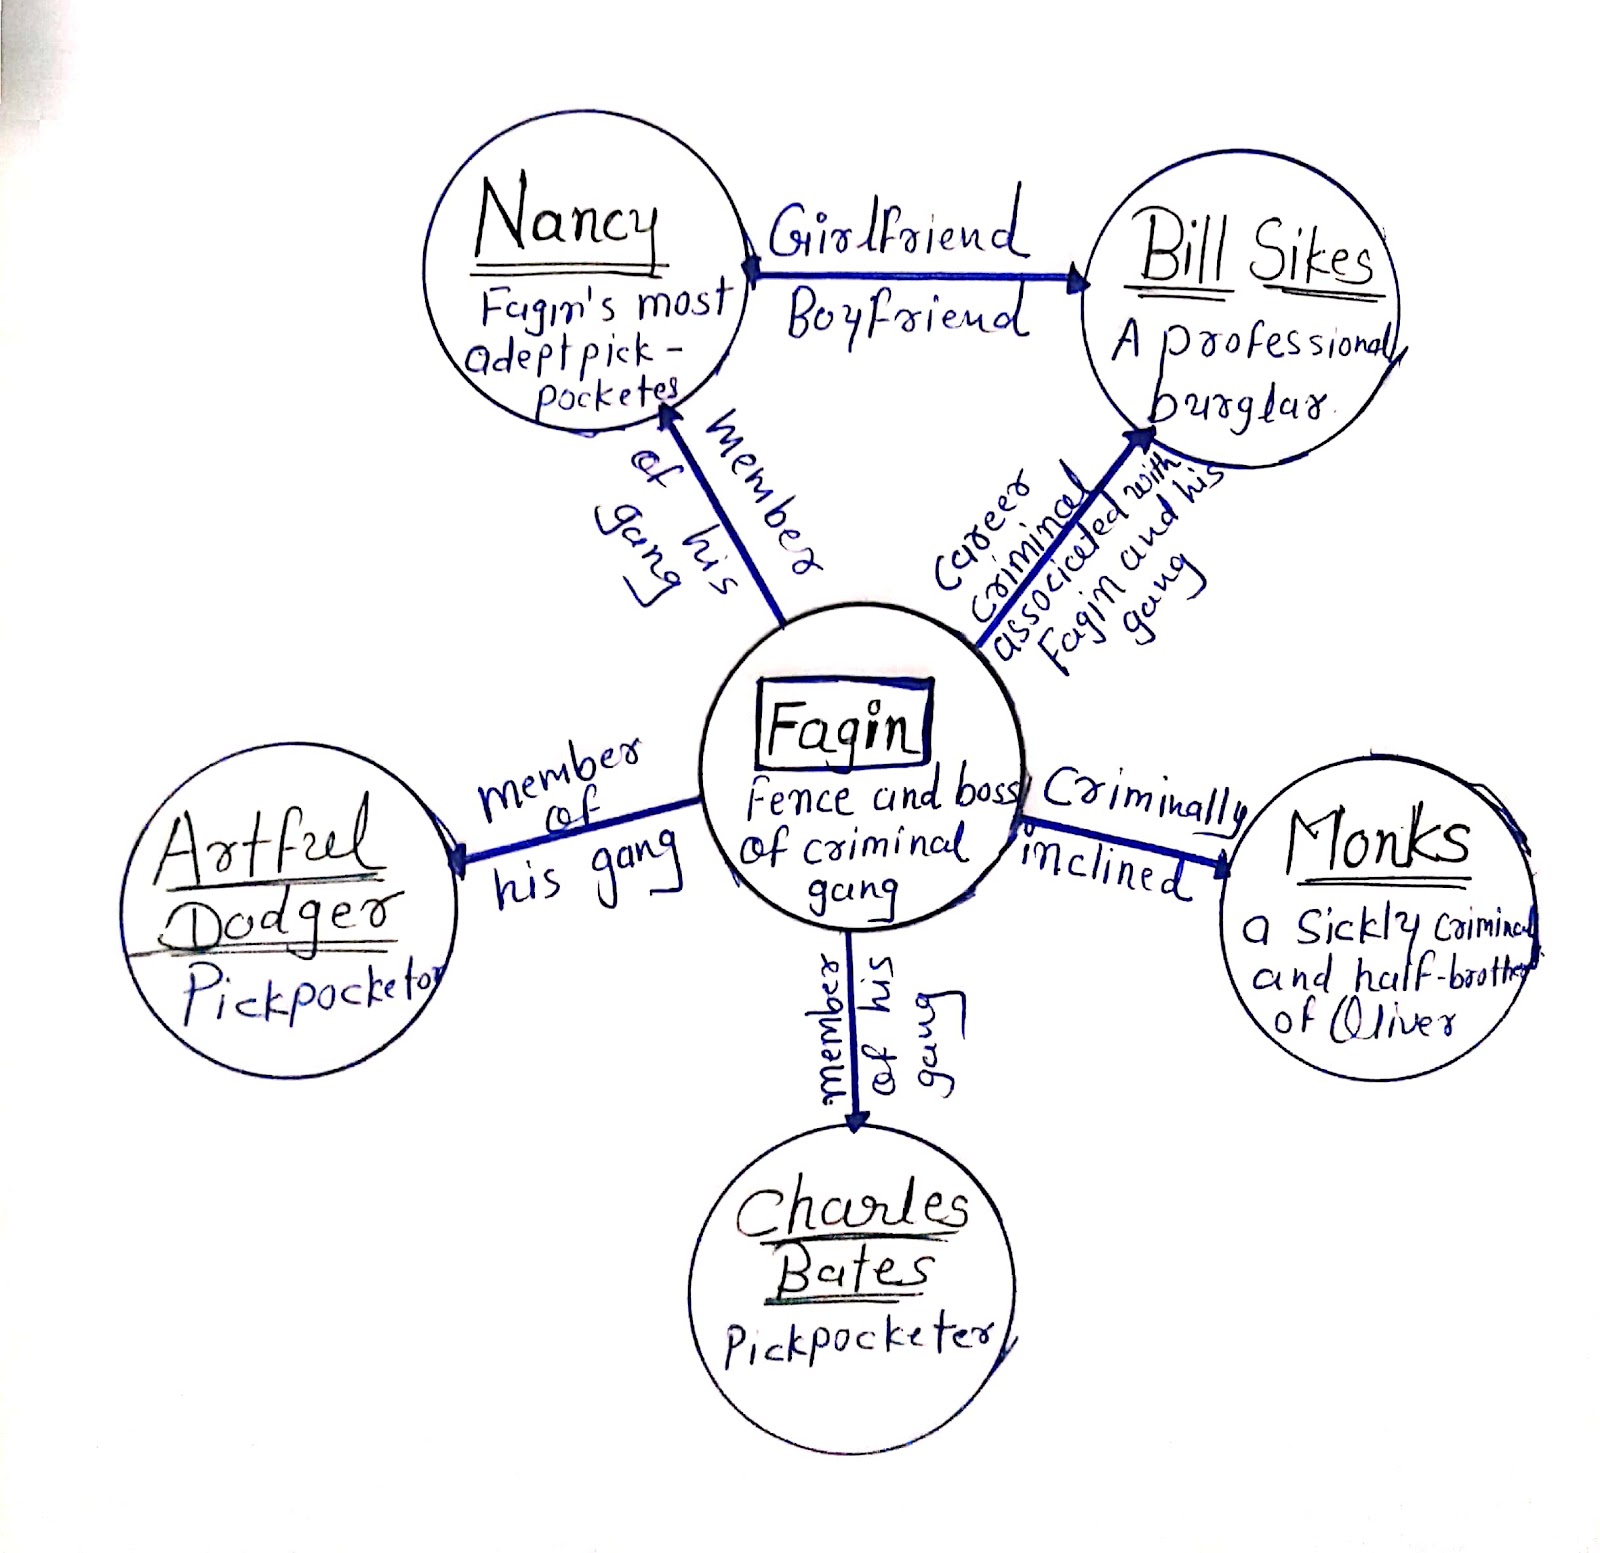 Nancy
Fagin's most
adept pick-
pocketes
Girlfriend
Boyfriend
Bill Sikes
A professional
burglar.
member
of his
gang
career
criminal
associated with
Fagin and his
gang
Fagin
Fence and boss
of criminal
gang
member
of
his gang
Artful
Dodger
Pickpocketor
Criminally
inclined
Monks
a Sickly criminal
and half-brother
of Oliver
member
of his
gang
Charles
Bates
Pickpocketer